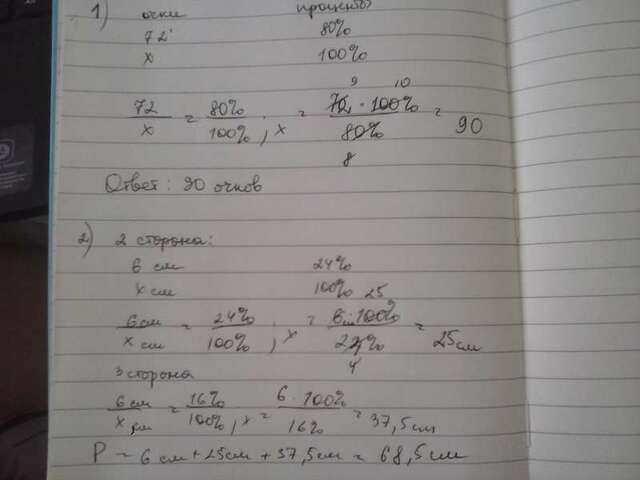 1) очки проценты
72 80%
x 100%
72/x = 80%/100% ; x = 72 · 100%/80% = 90
9 10
8
Ответ: 90 очков
2) 2 сторона:
6 см 24%
x см 100%
6 см/x см = 24%/100% ; x = 6 · 100%/24% = 25 см
25
4
3 сторона
6 см/x см = 16%/100% , x = 6 · 100%/16% = 37,5 см
P = 6 см + 25 см + 37,5 см = 68,5 см